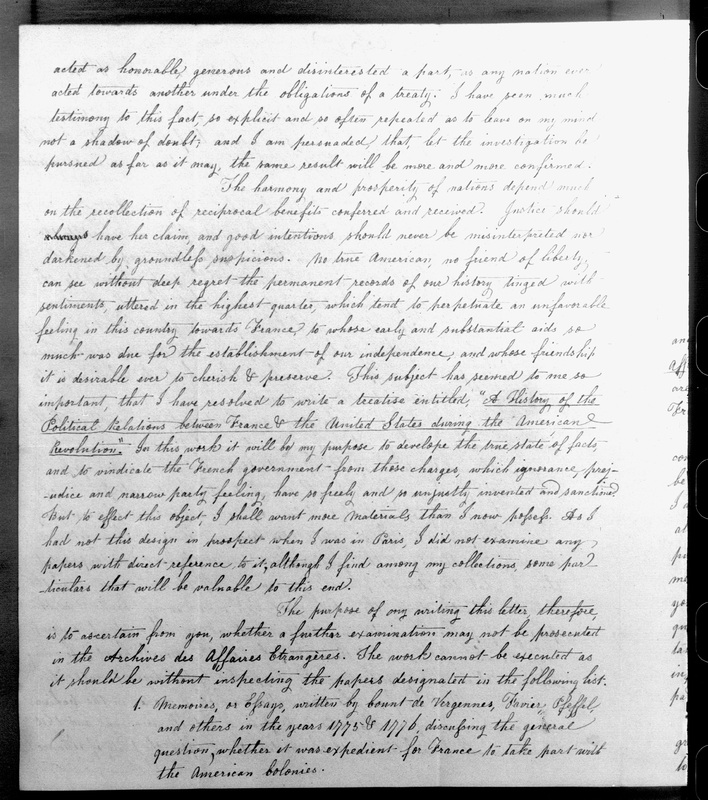 acted as honorable, generous and disinterested a part, as any nation ever
acted towards another under the obligations of a treaty. I have seen much
testimony to this fact, so explicit and so often repeated as to leave on my mind
not a shadow of doubt; and I am persuaded, that, let the investigation be
pursued as far as it may, the same result will be more and more confirmed.
The harmony and prosperity of nations depend much
on the recollection of reciprocal benefits conferred and received. Justice should
always have her claim, and good intentions should never be misinterpreted nor
darkened by groundless suspicions. No true American, no friend of liberty,
can see without deep regret the permanent records of our history tinged with
sentiments, uttered in the highest quarter, which tend to perpetuate an unfavorable
feeling in this country towards France, to whose early and substantial aids so
much was due for the establishment of our independence, and whose friendship
it is desirable ever to cherish & preserve. This subject has seemed to me so
important, that I have resolved to write a treatise entitled, "A History of the
Political Relations between France & the United States during the American
Revolution." In this work it will be my purpose to develope the true state of facts,
and to vindicate the French government from those charges, which ignorance, prej-
-udice and narrow party feeling, have so freely and so unjustly invented and sanctioned.
But to effect this object, I shall want more materials than I now possess. As I
had not this design in prospect when I was in Paris, I did not examine any
papers with direct reference to it, although I find among my collections, some par-
-ticulars that will be valuable to this end.
The purpose of my writing this letter, therefore,
is to ascertain from you, whether a further examination may not be prosecuted
in the Archives des Affaires Etrangères. The work cannot be executed as
it should be without inspecting the papers designated in the following list.
1. Memoires, or Essays, written by Count de Vergennes, Favier, Pfeffel,
and others in the years 1775 & 1776, discussing the general
question, whether it was expedient for France to take part with
the American Colonies.